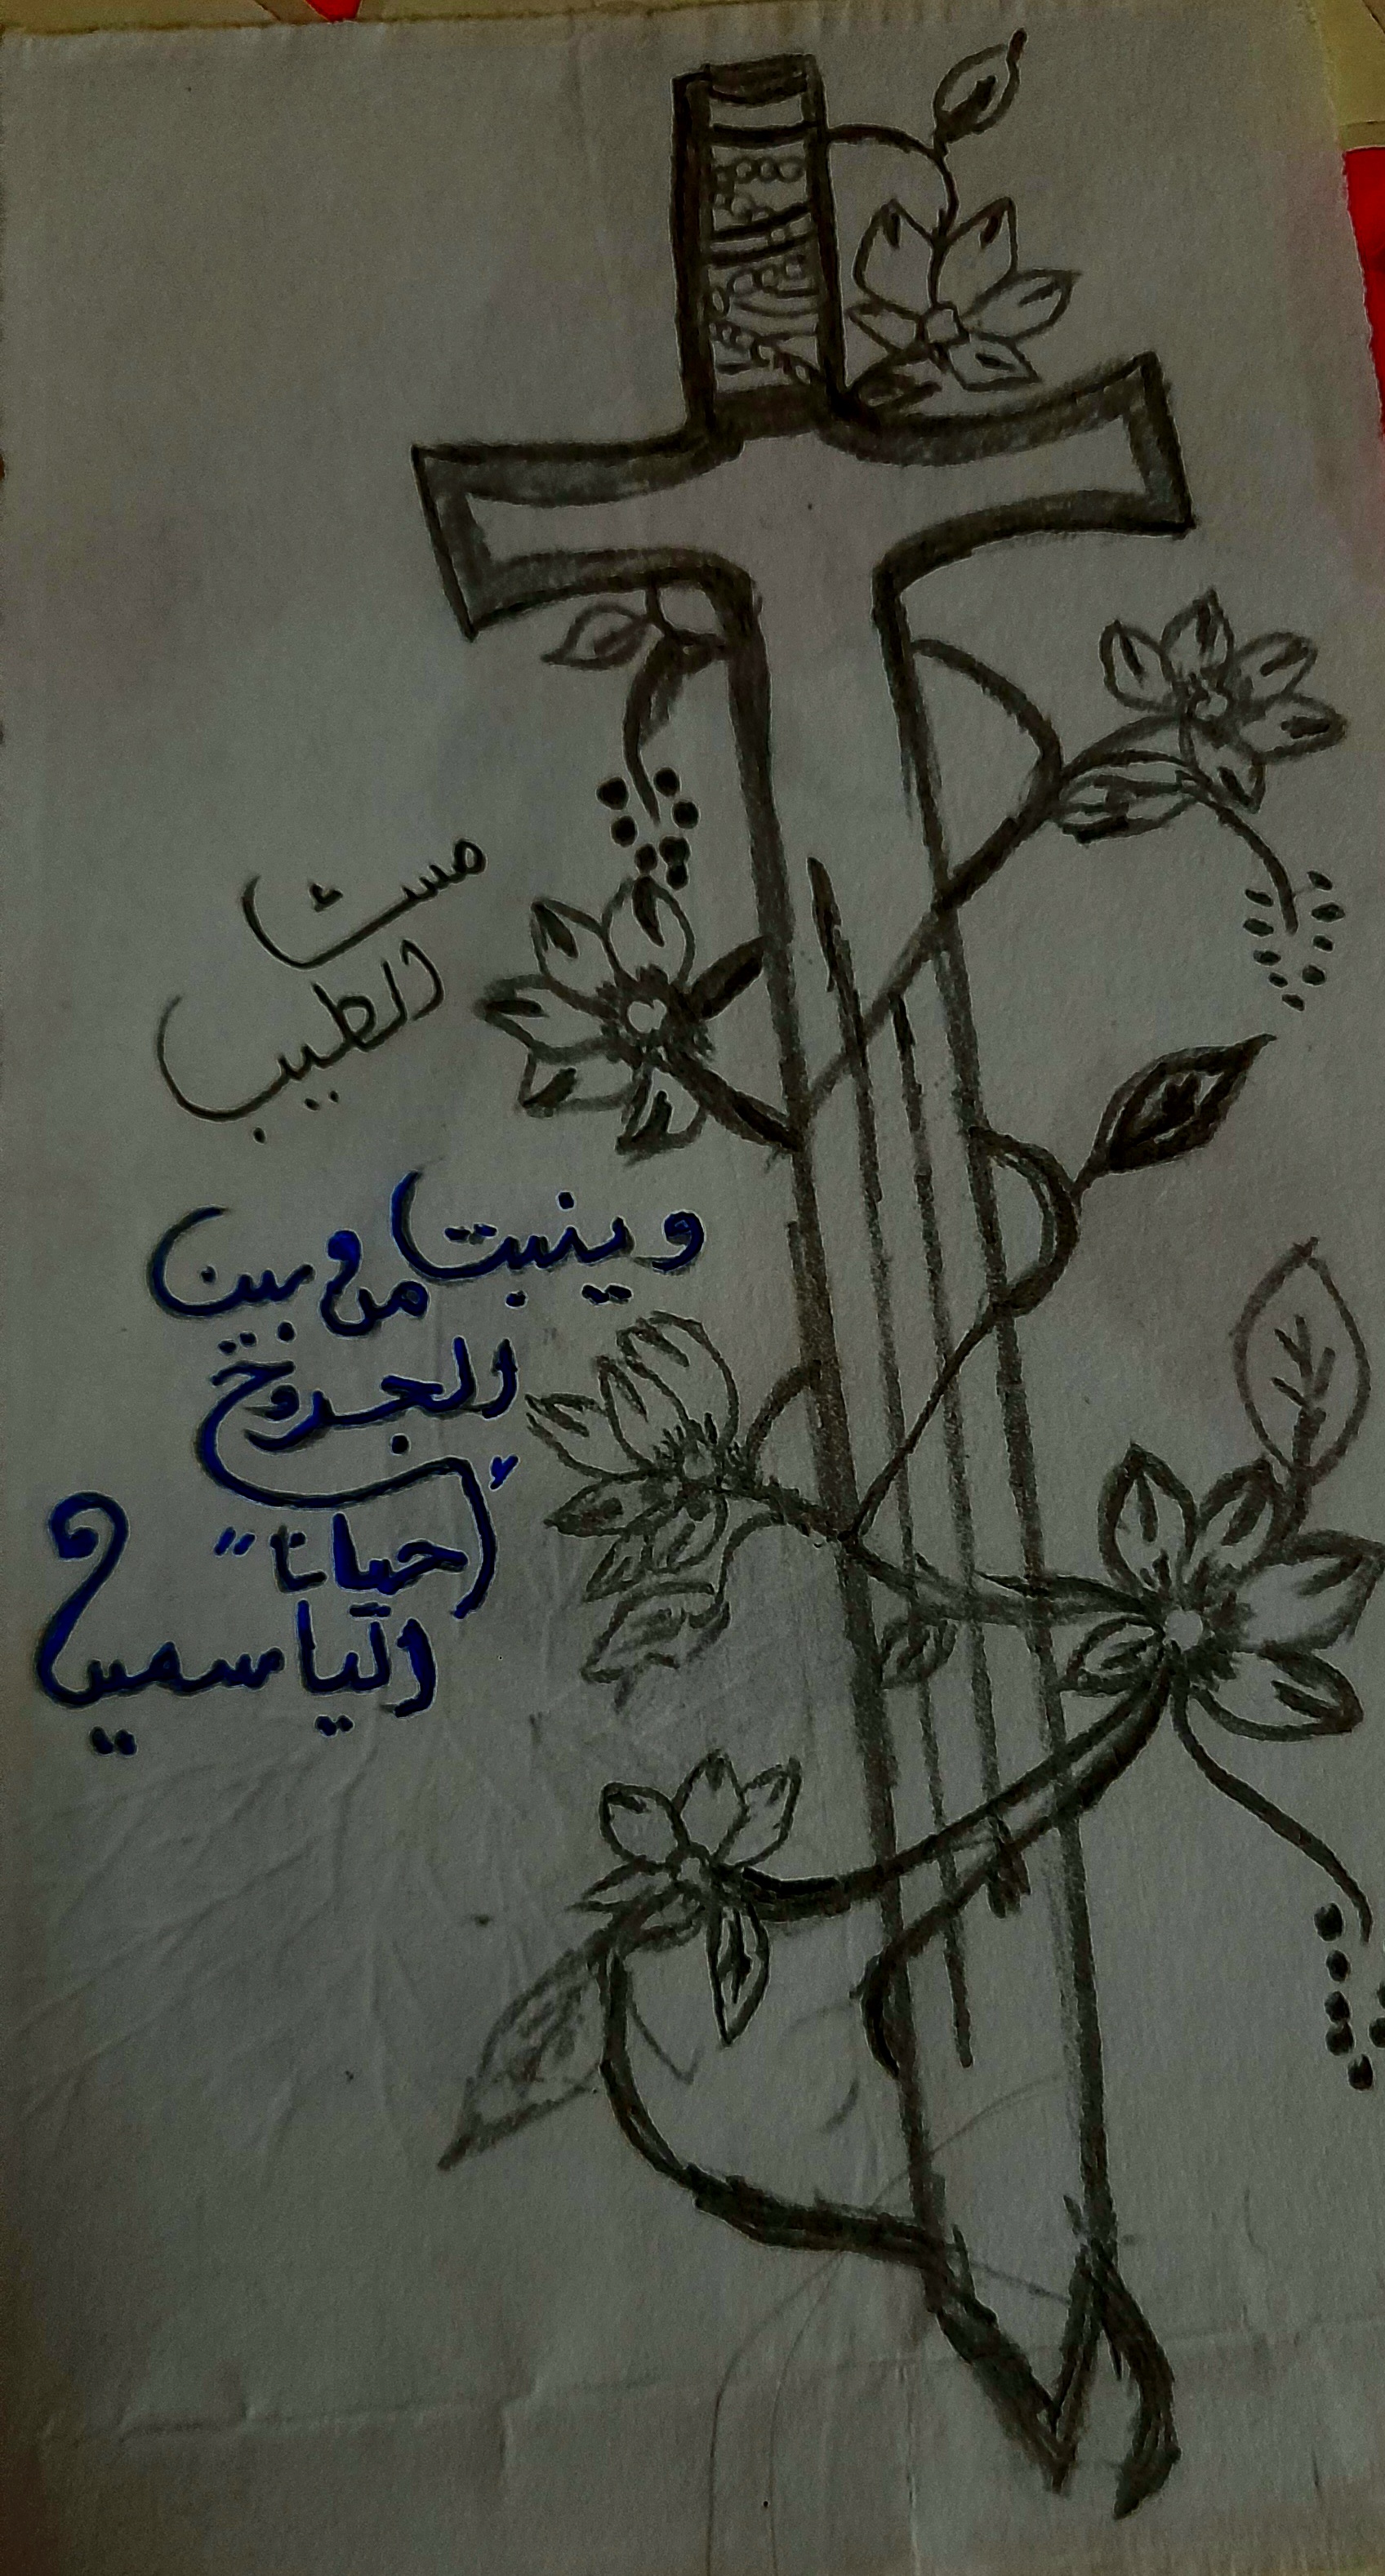 الطيب
وينبت من بين
الجروح
أحياناً
الياسمين